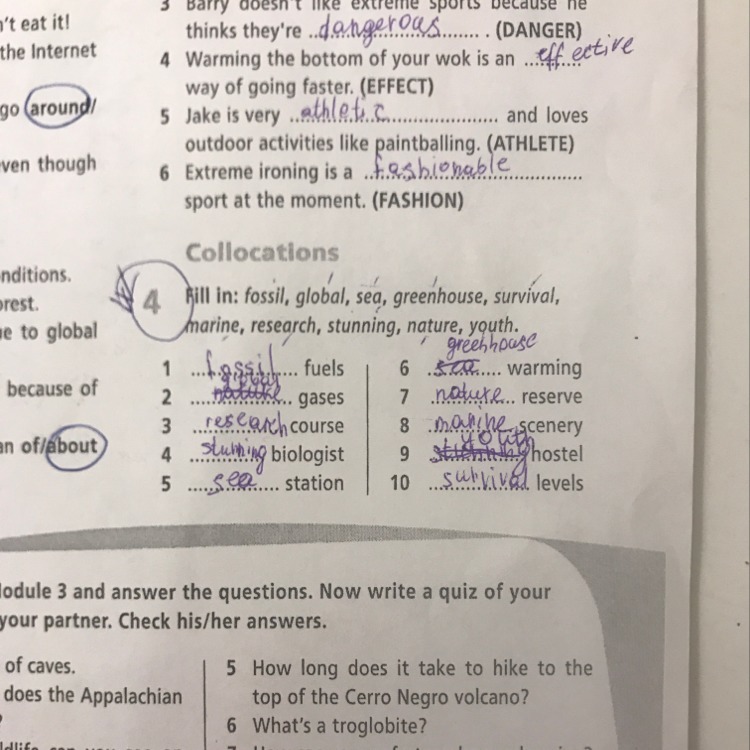 3 Barry doesn't like extreme sports because he
thinks they're ..dangerous....... . (DANGER)
4 Warming the bottom of your wok is an ...effective
way of going faster. (EFFECT)
5 Jake is very ..athletic.................... and loves
outdoor activities like paintballing. (ATHLETE)
6 Extreme ironing is a ..fashionable..............
sport at the moment. (FASHION)
n't eat it!
the Internet
go around/
ven though
nditions.
rest.
ne to global
because of
an of/about
Collocations
4 Fill in: fossil, global, sea, greenhouse, survival,
marine, research, stunning, nature, youth.
1 ...fossil.... fuels
2 global gases
3 research course
4 stunning biologist
5 .....sea......... station
6 greenhouse warming
7 .nature... reserve
8 .marine. scenery
9 youth hostel
10 ...survival levels
Module 3 and answer the questions. Now write a quiz of your
your partner. Check his/her answers.
of caves.
does the Appalachian
?
5 How long does it take to hike to the
top of the Cerro Negro volcano?
6 What's a troglobite?